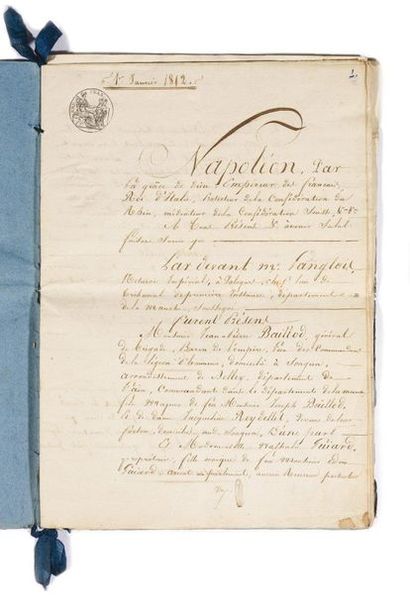 1er Janvier 1812.
Napoléon, Par
la grâce de dieu Empereur des français,
Roi d'Italie, Protecteur de la Confédération du
Rhin, médiateur de la Confédération Suisse,
A Tous Présens & à venir Salut
faisons Savoir que
Par devant me. Langlois,
Notaire Impérial, à
tribunal de première Instance, département
de la manche, Soussigné
furent Présens
Monsieur Jean-Pierre Baillod, général
de Brigade, Baron de l'empire, L'un des Commandans
de la Légion d'honneur, domicilié à Songieu,
arrondissement de Belley, département de
l'Ain, Commandant dans le département de la manche
fils majeur de feu Monsieur Joseph Baillod,
& de dame Josephte Reydellet,
domiciliée audit Songieu, D'une part
Et Mademoiselle Nathalie Guiard,
propriétaire, fille unique de feu Monsieur
Guiard